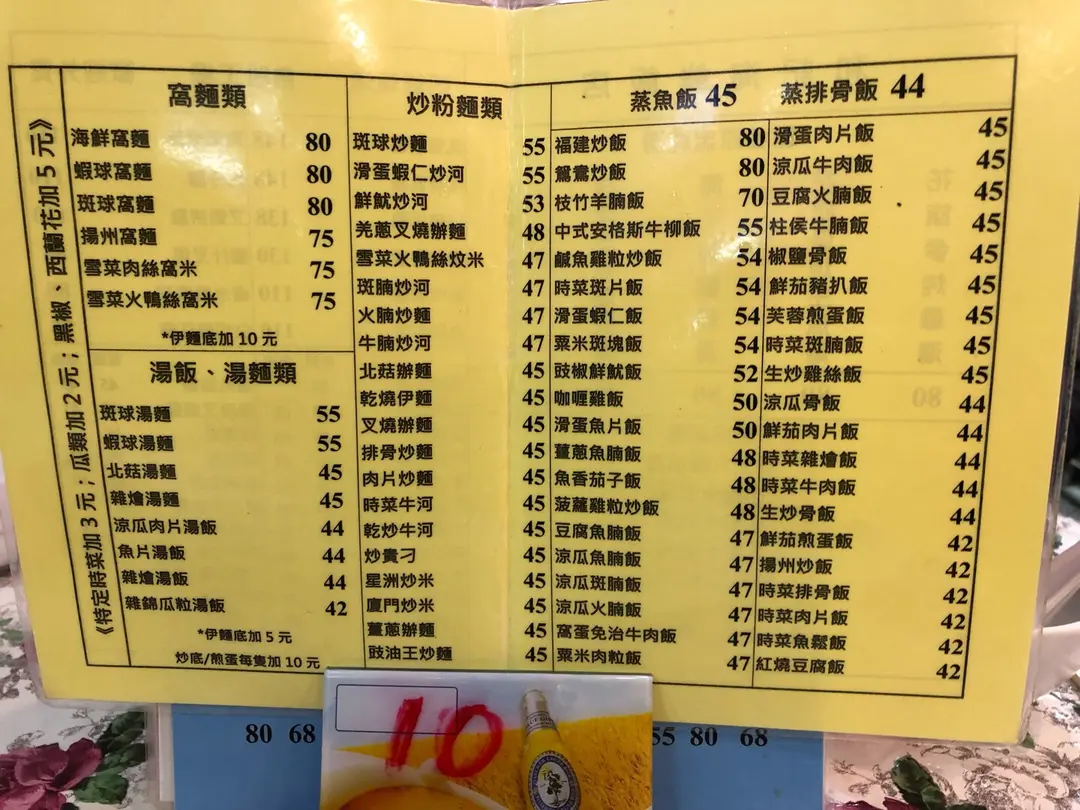 《特定時菜加 3 元；瓜類加 2 元；黑椒、西蘭花加 5 元》
窩麵類
海鮮窩麵 80
蝦球窩麵 80
斑球窩麵 80
揚州窩麵 75
雪菜肉絲窩米 75
雪菜火鴨絲窩米 75
*伊麵底加 10 元
湯飯、湯麵類
斑球湯麵 55
蝦球湯麵 55
北菇湯麵 45
雜燴湯麵 45
涼瓜肉片湯飯 44
魚片湯飯 44
雜燴湯飯 44
雜錦瓜粒湯飯 42
*伊麵底加 5 元
炒底/煎蛋每隻加 10 元
炒粉麵類
斑球炒麵 55
滑蛋蝦仁炒河 55
鮮魷炒河 53
羌蔥叉燒辦麵 48
雪菜火鴨絲炆米 47
斑腩炒河 47
火腩炒麵 47
牛腩炒河 47
北菇辦麵 45
乾燒伊麵 45
叉燒辦麵 45
排骨炒麵 45
肉片炒麵 45
時菜牛河 45
乾炒牛河 45
炒貴刁 45
星洲炒米 45
廈門炒米 45
薑蔥辦麵 45
豉油王炒麵 45
蒸魚飯 45 蒸排骨飯 44
福建炒飯 80
鴛鴦炒飯 80
枝竹羊腩飯 70
中式安格斯牛柳飯 55
鹹魚雞粒炒飯 54
時菜斑片飯 54
滑蛋蝦仁飯 54
粟米斑塊飯 54
豉椒鮮魷飯 52
咖喱雞飯 50
滑蛋魚片飯 50
薑蔥魚腩飯 48
魚香茄子飯 48
菠蘿雞粒炒飯 48
豆腐魚腩飯 47
涼瓜魚腩飯 47
涼瓜斑腩飯 47
涼瓜火腩飯 47
窩蛋免治牛肉飯 47
粟米肉粒飯 47
滑蛋肉片飯 45
涼瓜牛肉飯 45
豆腐火腩飯 45
柱侯牛腩飯 45
椒鹽骨飯 45
鮮茄豬扒飯 45
芙蓉煎蛋飯 45
時菜斑腩飯 45
生炒雞絲飯 45
涼瓜骨飯 44
鮮茄肉片飯 44
時菜雜燴飯 44
時菜牛肉飯 44
生炒骨飯 44
鮮茄煎蛋飯 42
揚州炒飯 42
時菜排骨飯 42
時菜肉片飯 42
時菜魚鬆飯 42
紅燒豆腐飯 42
80 68
10
55 80 68